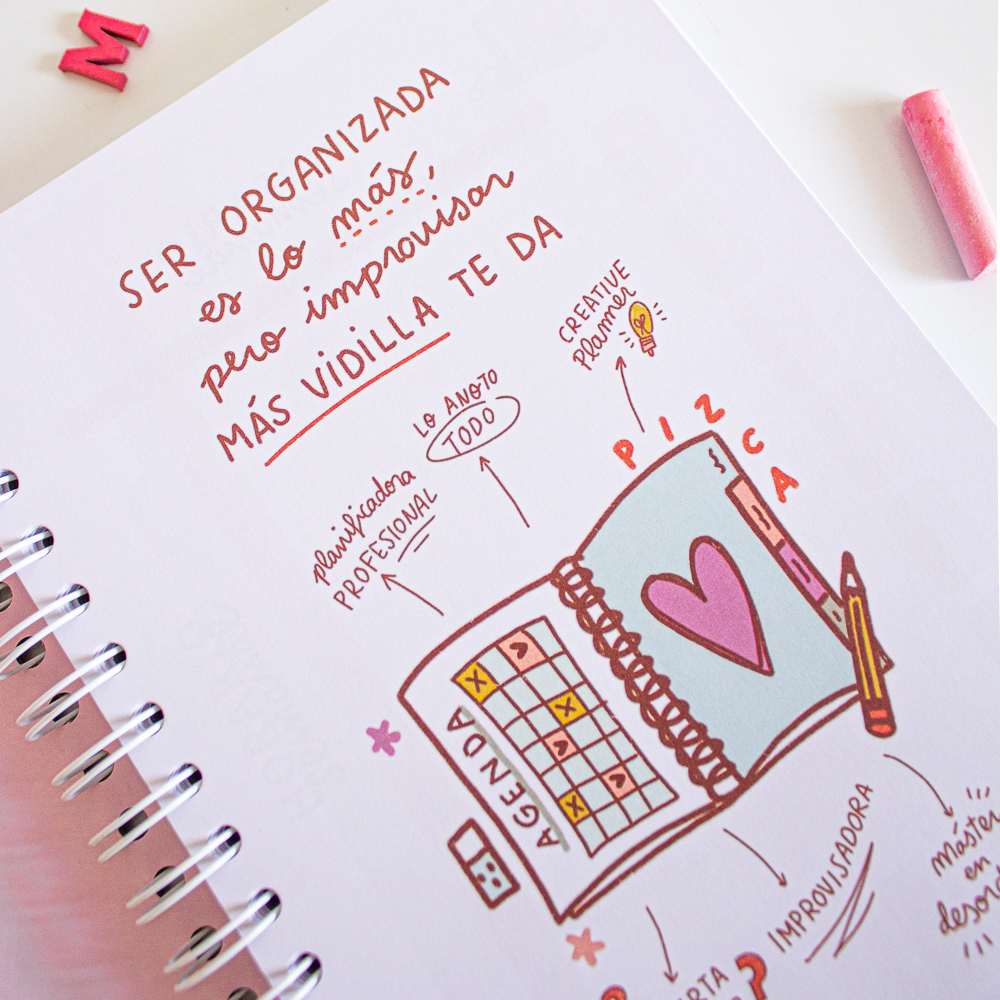 M
SER ORGANIZADA
es lo más,
pero improvisar
MÁS VIDILLA TE DA
CREATIVE
planner
LO ANOTO
TODO
planificadora
PROFESIONAL
PIZCA
AGENDA
IMPROVISADORA
máster
en